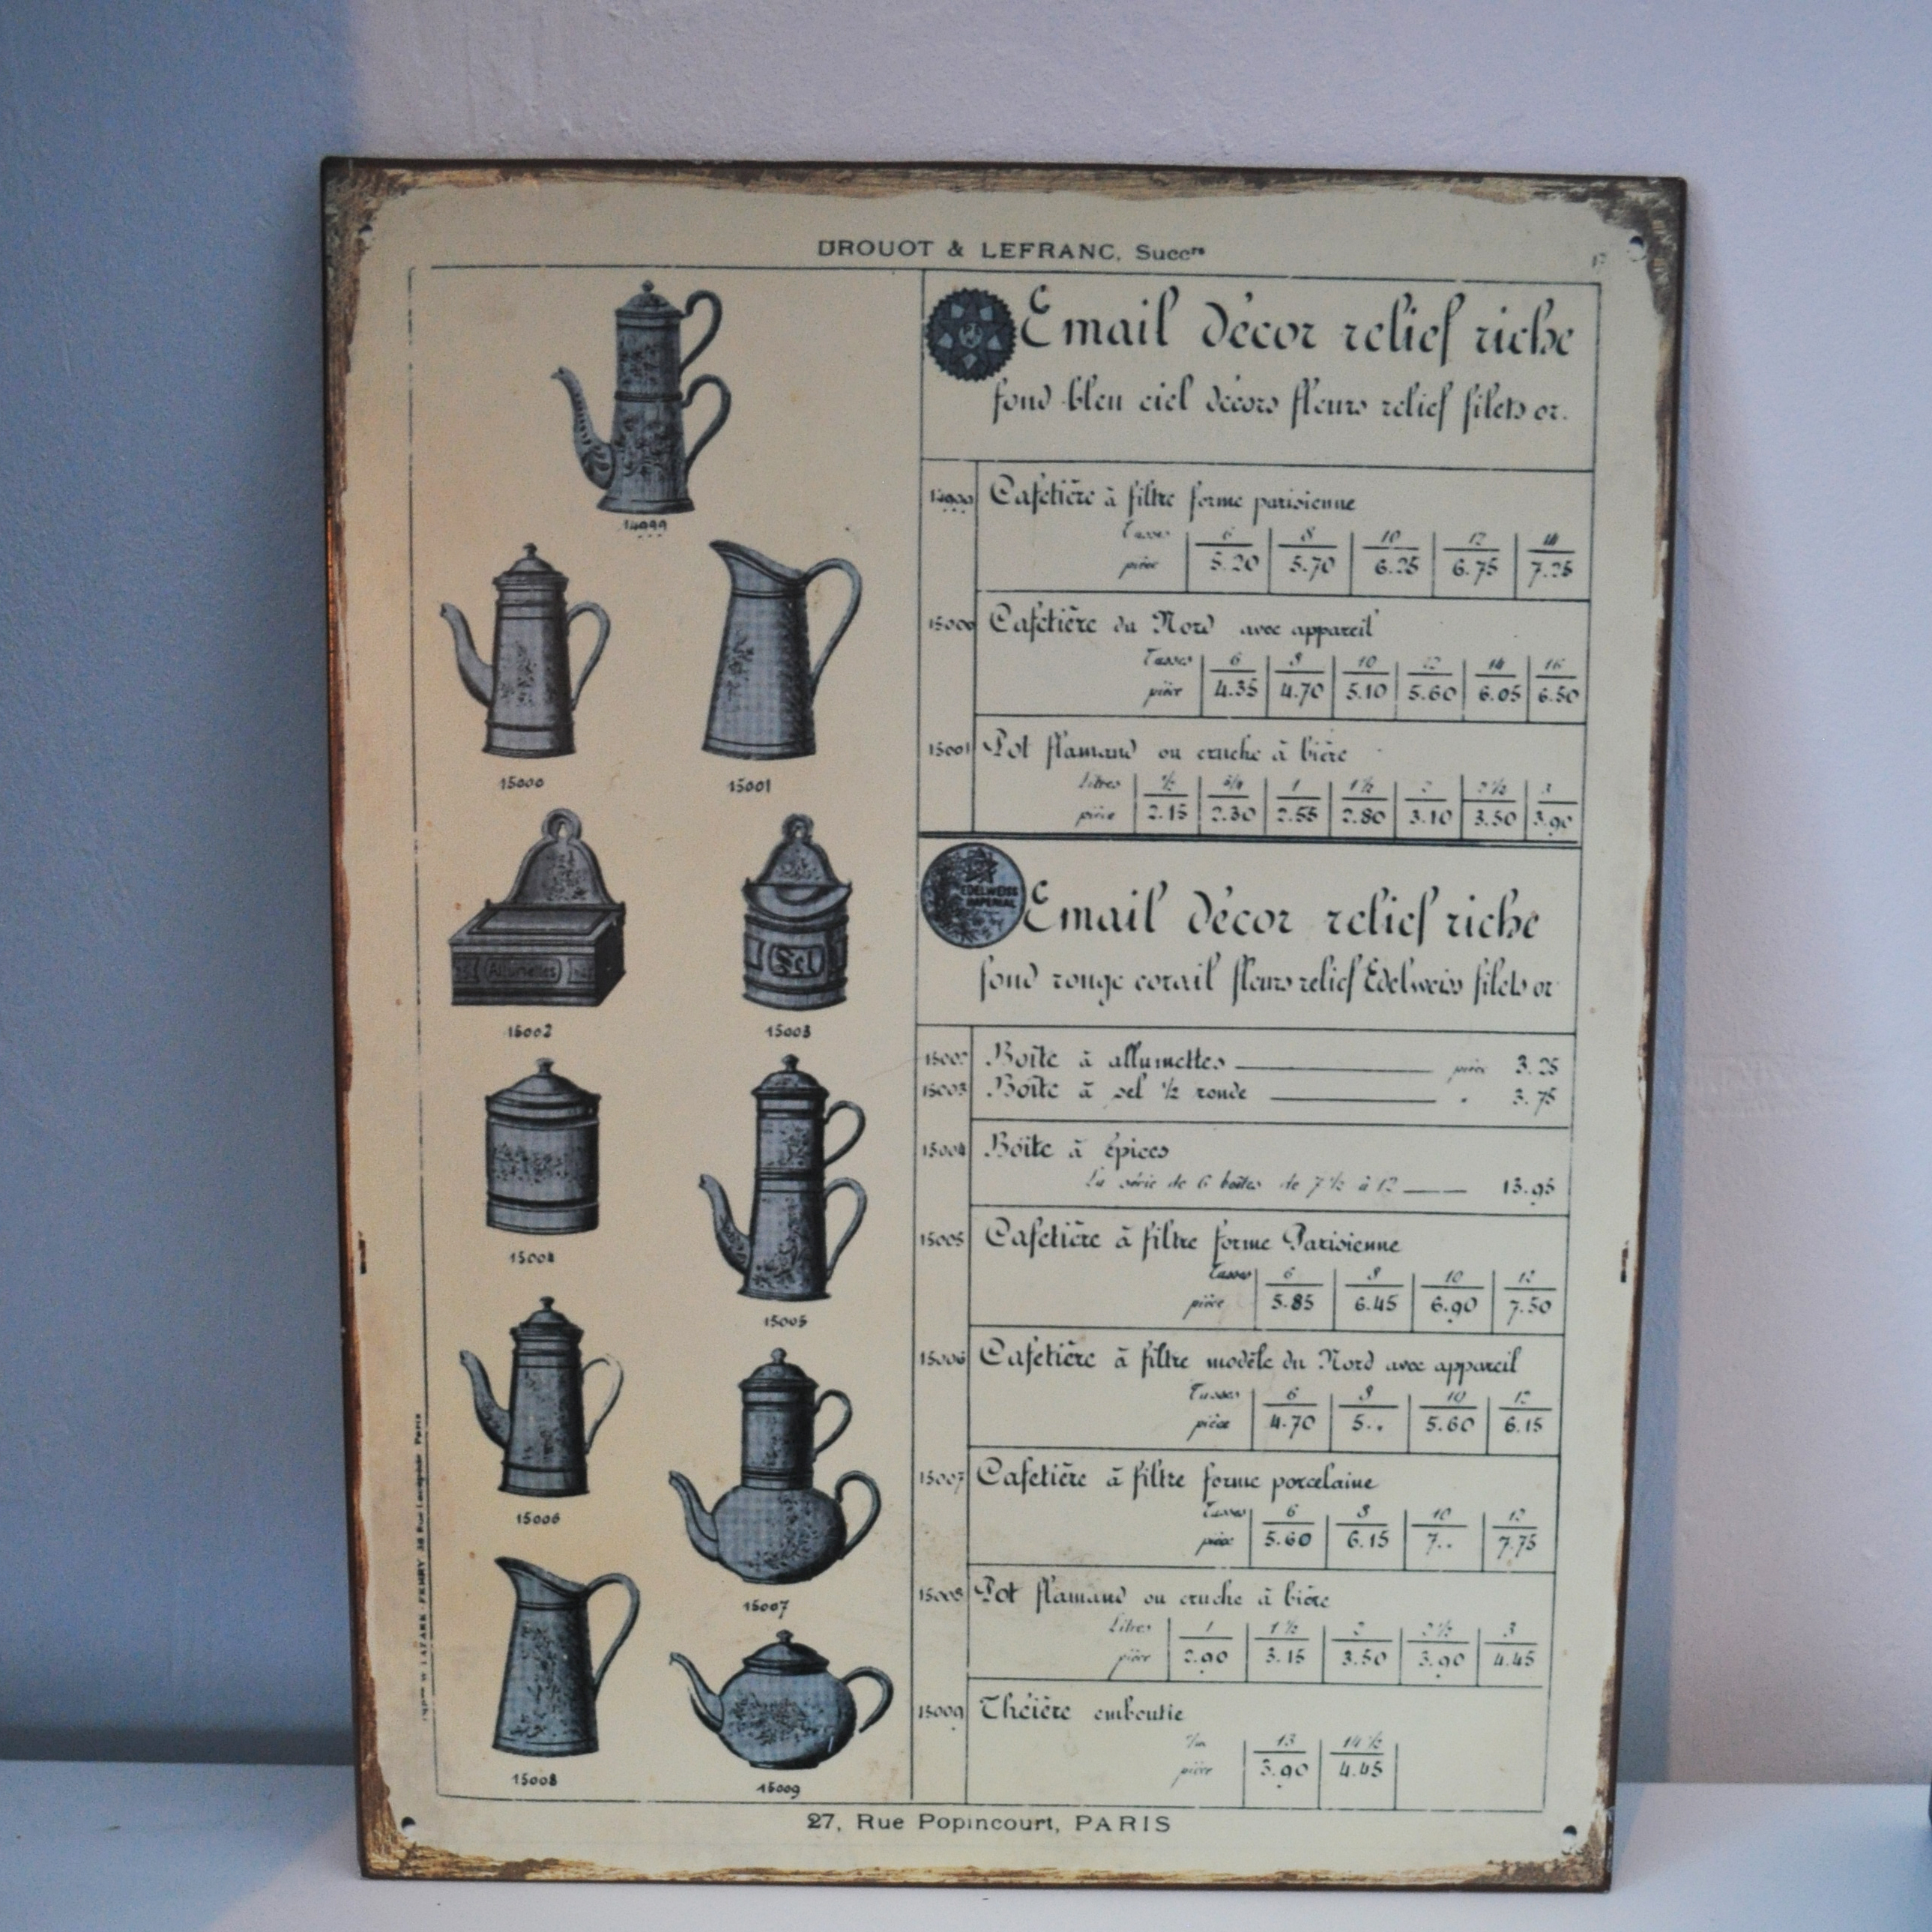 DROUOT & LEFRANC, Succrs
17
14999
15000
15001
Allumettes
Sel
15002
15003
15004
15005
15006
15007
15008
15009
Email décor relief riche
fond bleu ciel décors fleurs relief filets or.
Cafetière à filtre forme parisienne
Tasses 6 8 10 12 14
pièce 5.20 5.70 6.25 6.75 7.25
15000 Cafetière du Nord avec appareil
Tasses 6 8 10 12 14 16
pièce 4.35 4.70 5.10 5.60 6.05 6.50
15001 Pot flamand ou cruche à bière
Litres 1/2 3/4 1 1 1/2 2 2 1/2 3
pièce 2.15 2.30 2.55 2.80 3.10 3.50 3.90
EDELWEISS
IMPERIAL
Email décor relief riche
fond rouge corail fleurs relief Edelweiss filets or
15002 Boîte à allumettes pièce 3.25
15003 Boîte à sel 1/2 ronde " 3.75
15004 Boîte à épices
La série de 6 boîtes de 7 1/2 à 12 13.95
15005 Cafetière à filtre forme Parisienne
Tasses 6 8 10 12
pièce 5.85 6.45 6.90 7.50
15006 Cafetière à filtre modèle du Nord avec appareil
Tasses 6 8 10 12
pièce 4.70 5.. 5.60 6.15
15007 Cafetière à filtre forme porcelaine
Tasses 6 8 10 12
pièce 5.60 6.15 7.. 7.75
15008 Pot flamand ou cruche à bière
Litres 1 1 1/2 2 2 1/2 3
pièce 2.90 3.15 3.50 3.90 4.45
15009 Théière emboutie
c/m 13 14 1/2
pièce 3.90 4.45
27, Rue Popincourt, PARIS